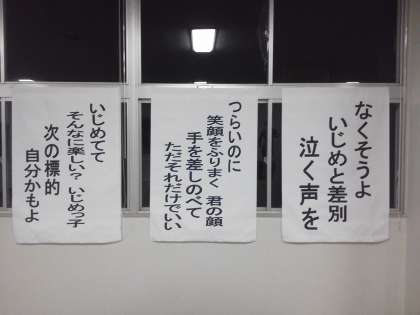 なくそうよ
いじめと差別
泣く声を
つらいのに
笑顔をふりまく 君の顔
手を差しのべて
ただそれだけでいい
いじめてて
そんなに楽しい? いじめっ子
次の標的
自分かもよ